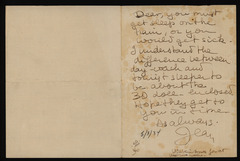 Dear, you must
get sleep on the
train, or you
would get sick.
I understand the
difference between
day coach and
tourist sleeper to
be about the
30 doll. enclosed
Hope they get to
you in time.
As always.
Jean